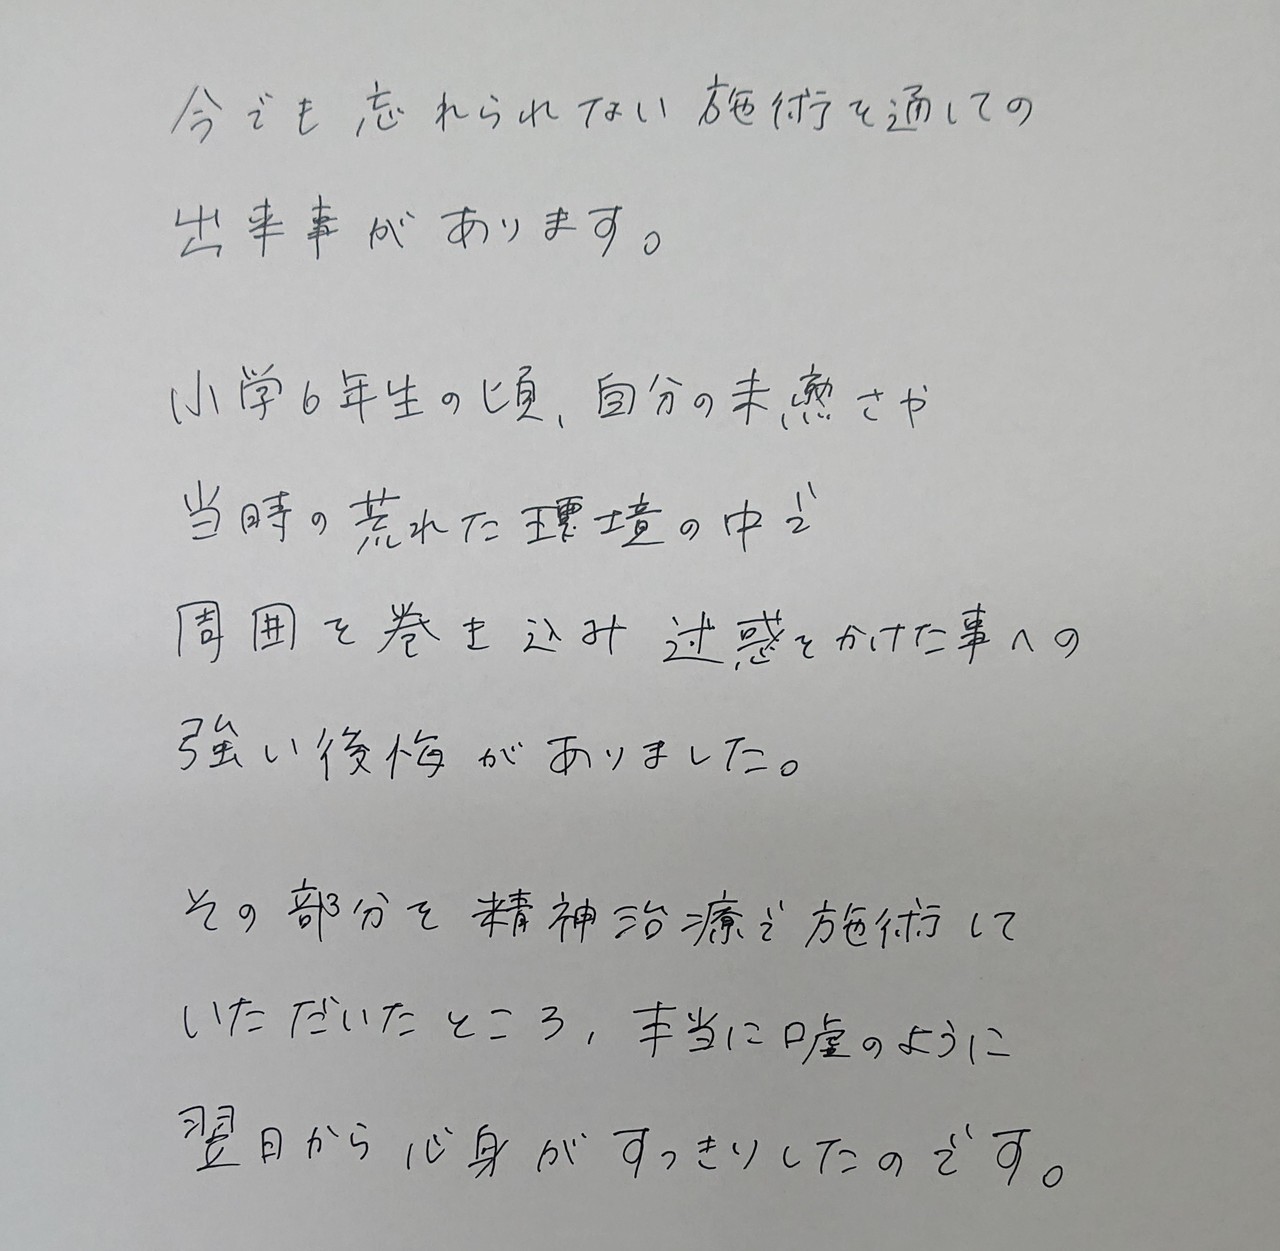 今でも忘れられない施術を通しての
出来事があります。
小学6年生の頃、自分の未熟さや
当時の荒れた環境の中で
周囲を巻き込み迷惑をかけた事への
強い後悔がありました。
その部分を精神治療で施術して
いただいたところ、本当に嘘のように
翌日から心身がすっきりしたのです。